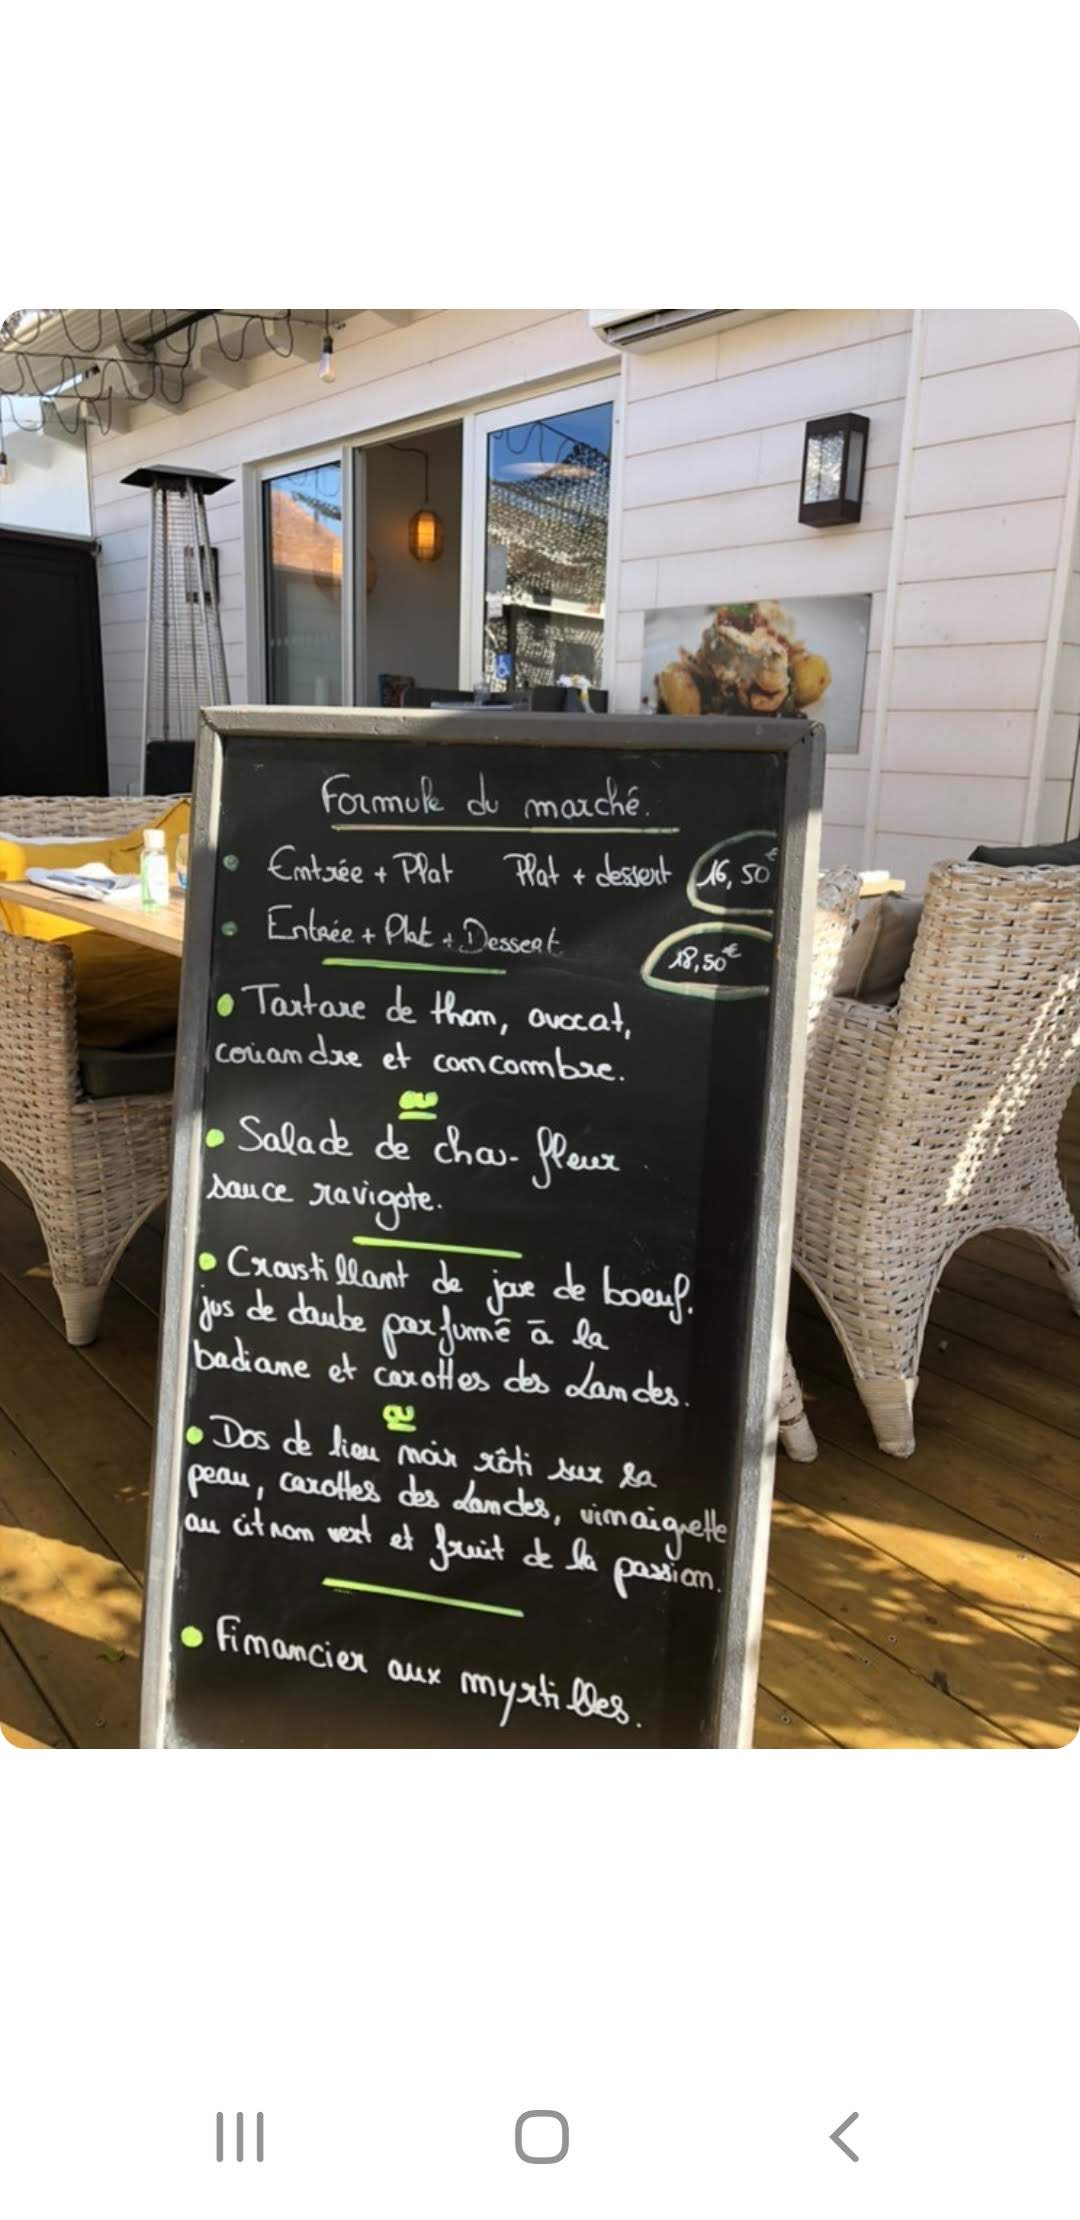 Formule du marché.
• Entrée + Plat Plat + dessert 16,50€
• Entrée + Plat + Dessert 18,50€
• Tartare de thon, avocat,
coriandre et concombre.
ou
• Salade de chou-fleur
sauce ravigote.
• Croustillant de joue de boeuf,
jus de daube parfumé à la
badiane et carottes des Landes.
ou
• Dos de lieu noir rôti sur sa
peau, carottes des Landes, vinaigrette
au citron vert et fruit de la passion.
• Financier aux myrtilles.